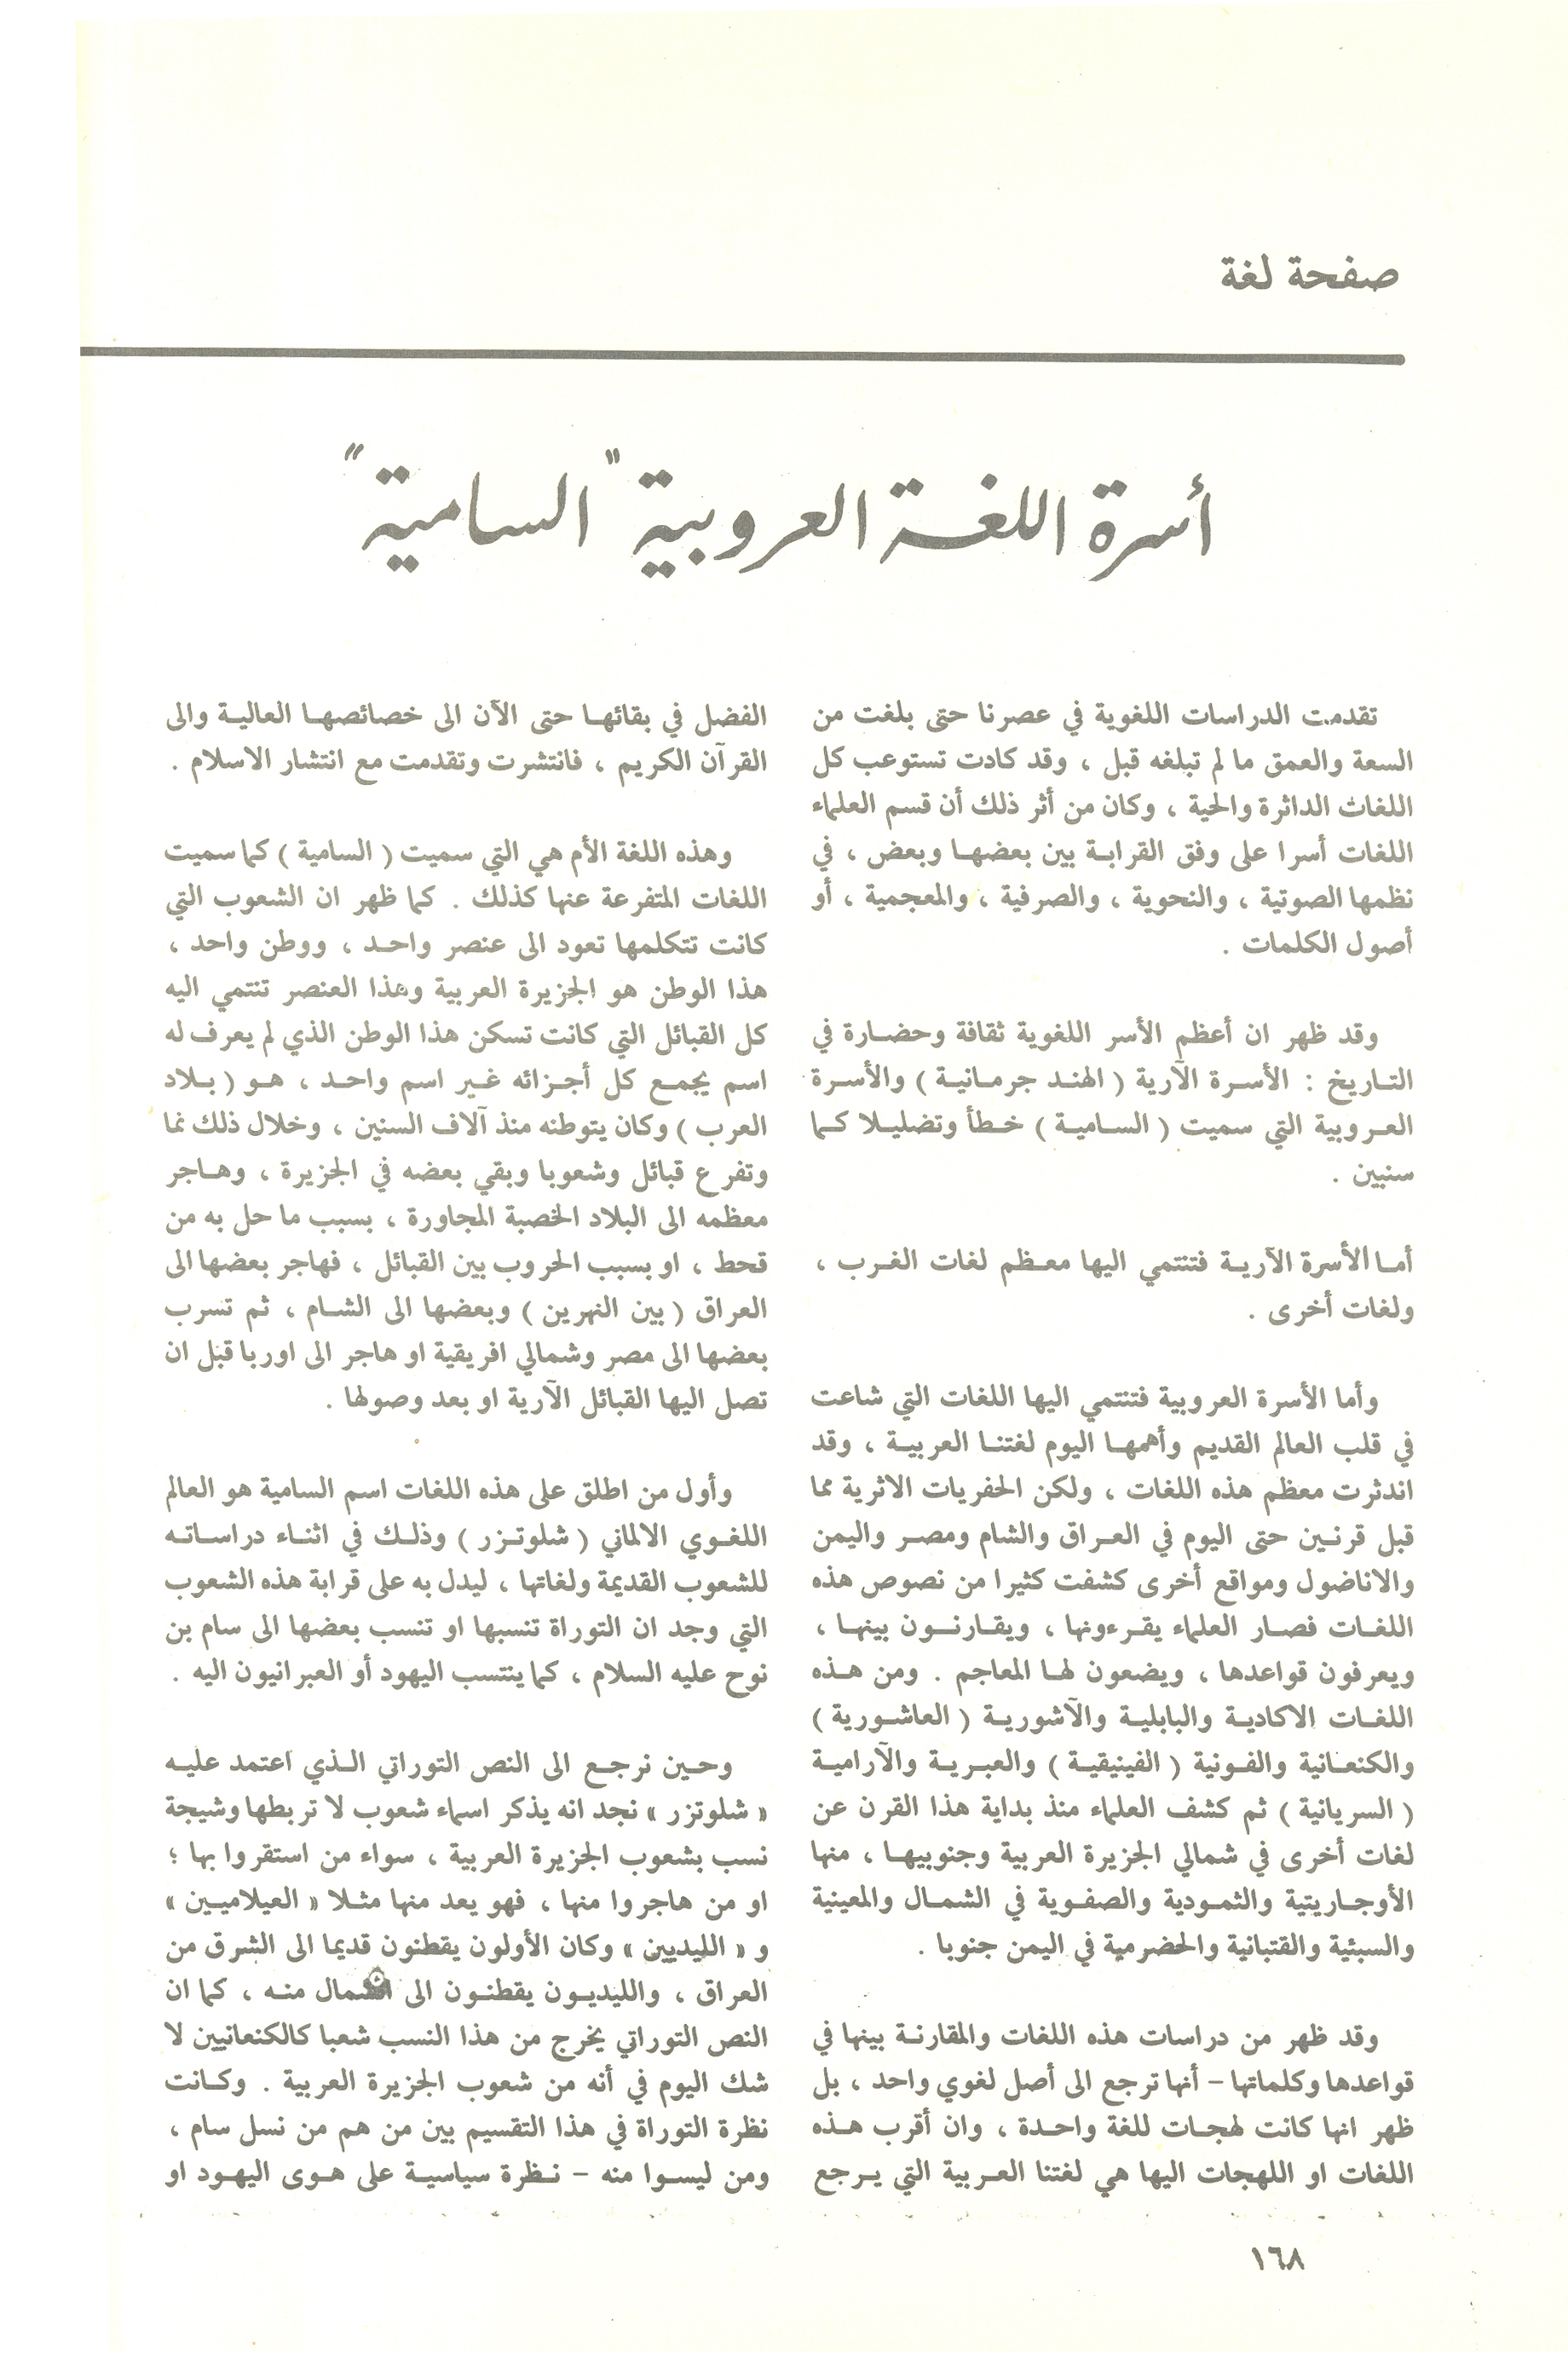 صفحة لغة
أسرة اللغة العروبية "السامية"
تقدمت الدراسات اللغوية في عصرنا حتى بلغت من
السعة والعمق ما لم تبلغه قبل ، وقد كادت تستوعب كل
اللغات الداثرة والحية ، وكان من أثر ذلك أن قسم العلماء
اللغات أسرا على وفق القرابة بين بعضها وبعض ، في
نظمها الصوتية ، والنحوية ، والصرفية ، والمعجمية ، أو
أصول الكلمات .
وقد ظهر ان أعظم الأسر اللغوية ثقافة وحضارة في
التاريخ : الأسرة الآرية ( الهند جرمانية ) والأسرة
العروبية التي سميت ( السامية ) خطأ وتضليلا كما
سنبين .
أما الأسرة الآرية فتنتمي اليها معظم لغات الغرب ،
ولغات أخرى .
وأما الأسرة العروبية فتنتمي اليها اللغات التي شاعت
في قلب العالم القديم وأهمها اليوم لغتنا العربية ، وقد
اندثرت معظم هذه اللغات ، ولكن الحفريات الاثرية مما
قبل قرنين حتى اليوم في العراق والشام ومصر واليمن
والاناضول ومواقع أخرى كشفت كثيرا من نصوص هذه
اللغات فصار العلماء يقرءونها ، ويقارنون بينها ،
ويعرفون قواعدها ، ويضعون لها المعاجم . ومن هذه
اللغات الاكادية والبابلية والآشورية ( العاشورية )
والكنعانية والفونية ( الفينيقية ) والعبرية والآرامية
( السريانية ) ثم كشف العلماء منذ بداية هذا القرن عن
لغات أخرى في شمالي الجزيرة العربية وجنوبيها ، منها
الأوجاريتية والثمودية والصفوية في الشمال والمعينية
والسبئية والقتبانية والحضرمية في اليمن جنوبا .
وقد ظهر من دراسات هذه اللغات والمقارنة بينها في
قواعدها وكلماتها – أنها ترجع الى أصل لغوي واحد ، بل
ظهر انها كانت لهجات للغة واحدة ، وان أقرب هذه
اللغات او اللهجات اليها هي لغتنا العربية التي يرجع
الفضل في بقائها حتى الآن الى خصائصها العالية والى
القرآن الكريم ، فانتشرت وتقدمت مع انتشار الاسلام .
وهذه اللغة الأم هي التي سميت ( السامية ) كما سميت
اللغات المتفرعة عنها كذلك . كما ظهر ان الشعوب التي
كانت تتكلمها تعود الى عنصر واحد ، ووطن واحد ،
هذا الوطن هو الجزيرة العربية وهذا العنصر تنتمي اليه
كل القبائل التي كانت تسكن هذا الوطن الذي لم يعرف له
اسم يجمع كل أجزائه غير اسم واحد ، هو ( بلاد
العرب ) وكان يتوطنه منذ آلاف السنين ، وخلال ذلك نما
وتفرع قبائل وشعوبا وبقي بعضه في الجزيرة ، وهاجر
معظمه الى البلاد الخصبة المجاورة ، بسبب ما حل به من
قحط ، او بسبب الحروب بين القبائل ، فهاجر بعضها الى
العراق ( بين النهرين ) وبعضها الى الشام ، ثم تسرب
بعضها الى مصر وشمالي افريقية او هاجر الى اوربا قبل ان
تصل اليها القبائل الآرية او بعد وصولها .
وأول من اطلق على هذه اللغات اسم السامية هو العالم
اللغوي الالماني ( شلوتزر ) وذلك في اثناء دراساته
للشعوب القديمة ولغاتها ، ليدل به على قرابة هذه الشعوب
التي وجد ان التوراة تنسبها او تنسب بعضها الى سام بن
نوح عليه السلام ، كما ينتسب اليهود أو العبرانيون اليه .
وحين نرجع الى النص التوراتي الذي اعتمد عليه
« شلوتزر » نجد انه يذكر اسماء شعوب لا تربطها وشيجة
نسب بشعوب الجزيرة العربية ، سواء من استقروا بها ؛
او من هاجروا منها ، فهو يعد منها مثلا « العيلاميين »
و « الليديين » وكان الأولون يقطنون قديما الى الشرق من
العراق ، والليديون يقطنون الى الشمال منه ، كما ان
النص التوراتي يخرج من هذا النسب شعبا كالكنعانيين لا
شك اليوم في أنه من شعوب الجزيرة العربية . وكانت
نظرة التوراة في هذا التقسيم بين من هم من نسل سام ،
ومن ليسوا منه – نظرة سياسية على هوى اليهود او
١٦٨